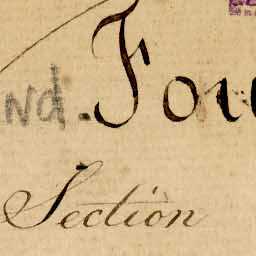 nd. Fou
Section